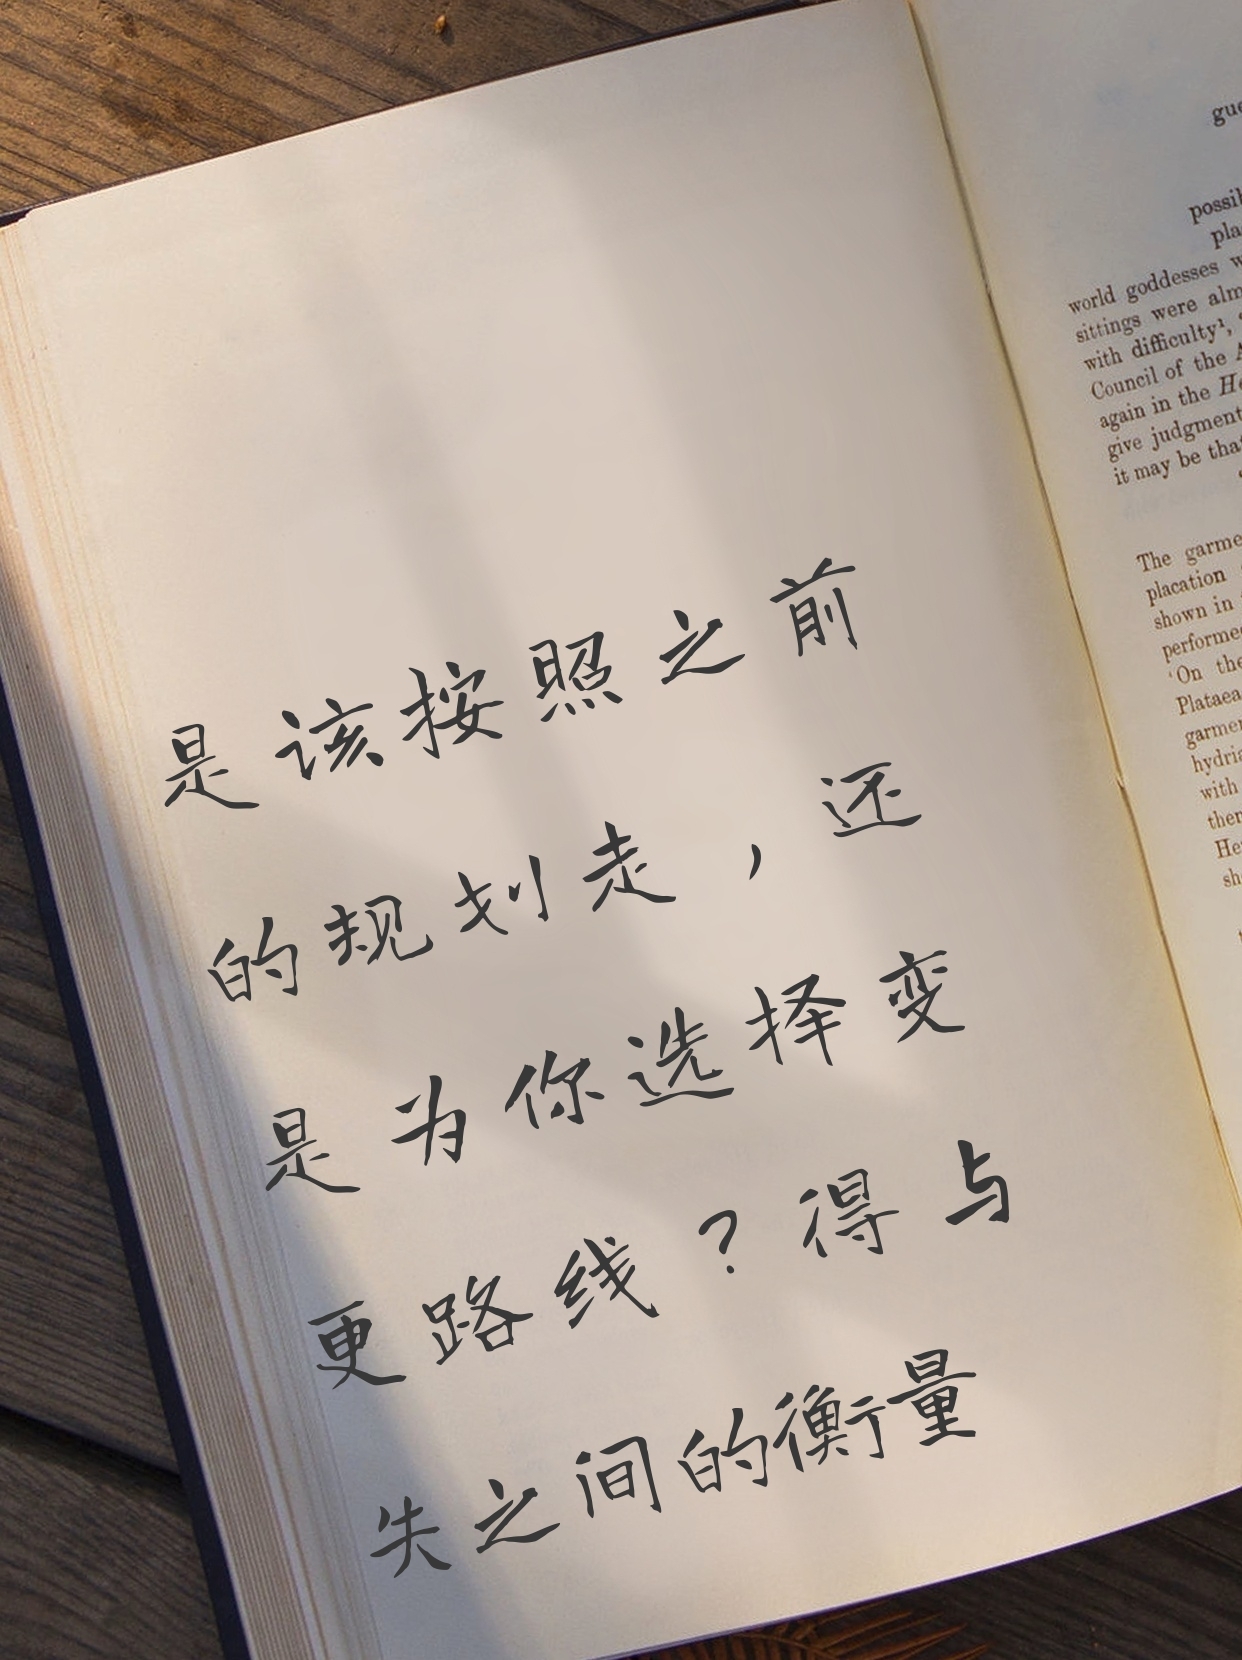 是该按照之前
的规划走，还
是为你选择变
更路线？得与
失之间的衡量
world goddesses
sittings were
with difficulty¹,
Council of the
again in the
give judgment
it may be that
The
placation
shown in
performed
'On the
Plataea
with